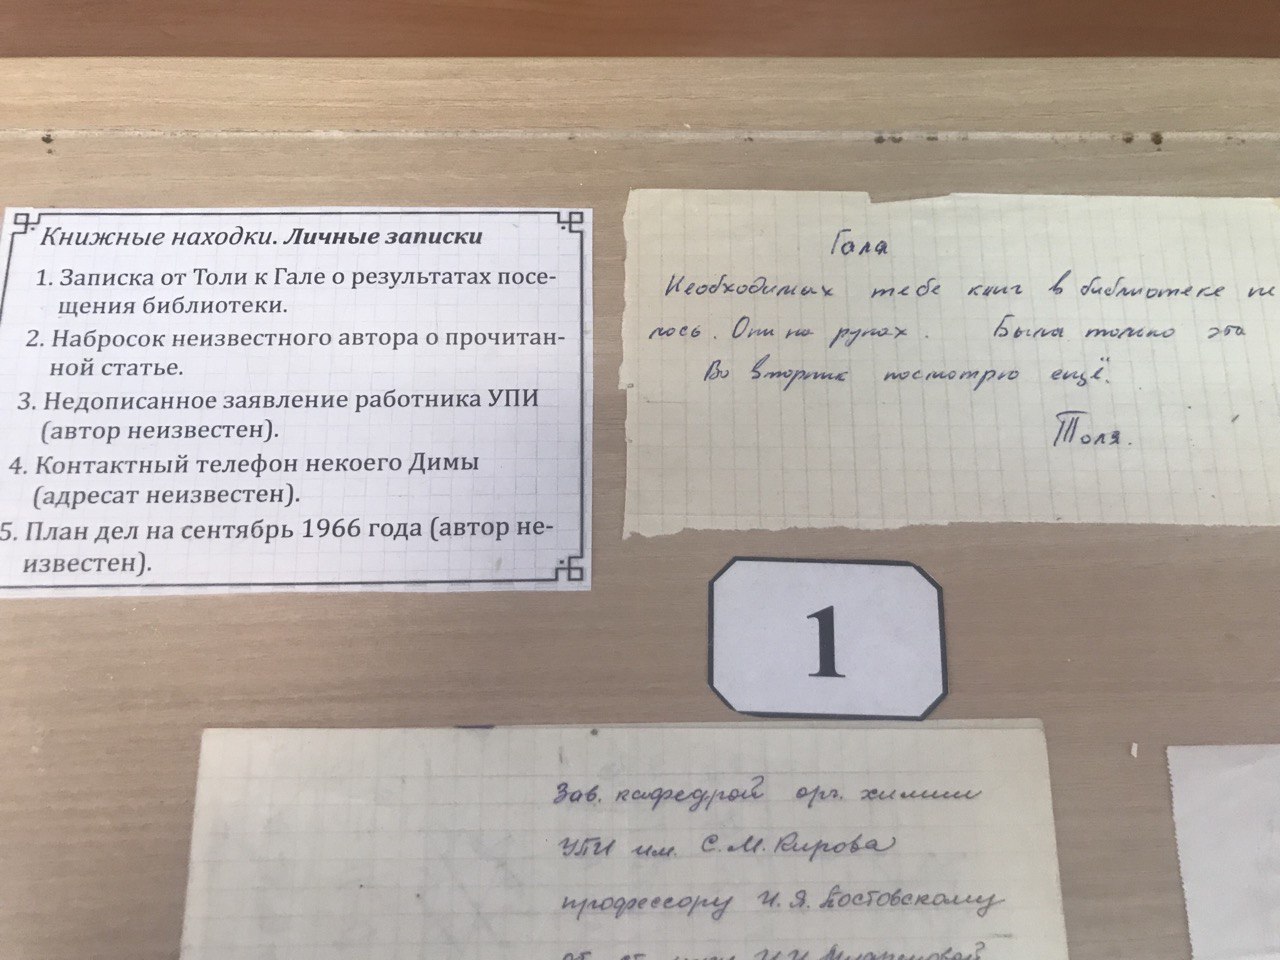 Книжные находки. Личные записки
1. Записка от Толи к Гале о результатах посе-
щения библиотеки.
2. Набросок неизвестного автора о прочитан-
ной статье.
3. Недописанное заявление работника УПИ
(автор неизвестен).
4. Контактный телефон некоего Димы
(адресат неизвестен).
5. План дел на сентябрь 1966 года (автор не-
известен).
Галя
Необходимых тебе книг в библиотеке
лось. Они на руках. Была только эта
Во вторник посмотрю ещё.
Толя.
1
Зав. кафедрой орг. химии
УПИ им. С.М. Кирова
профессору И.Я. Постовскому